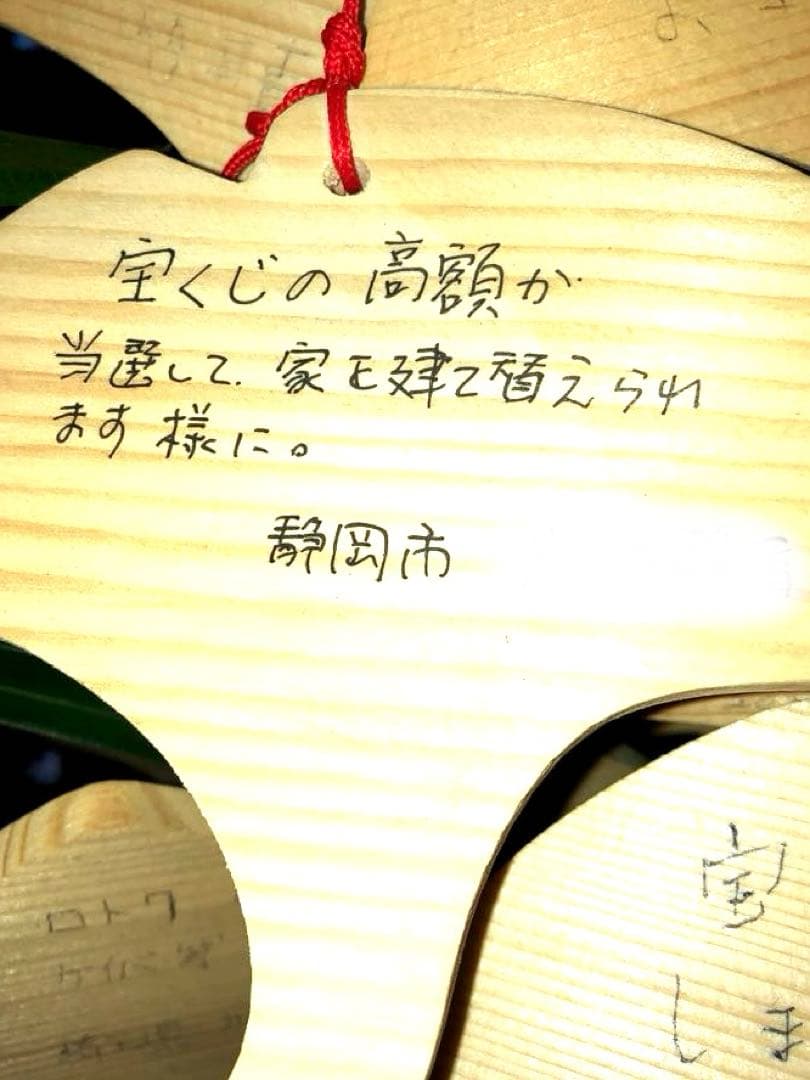 宝くじの高額が
当選して、家を建て替えられ
ます様に。
静岡市
宝
しま
ロト7